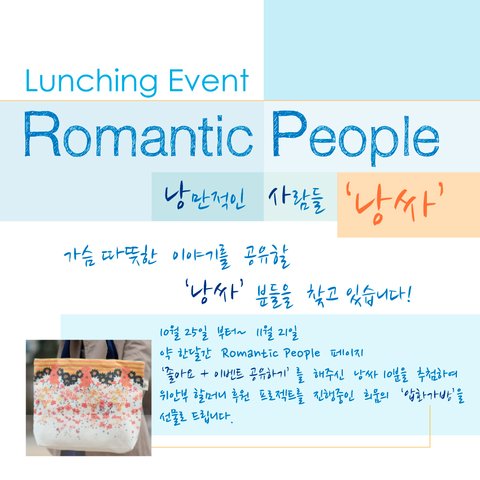 Lunching Event
Romantic People
낭만적인 사람들 '낭싸'
가슴 따뜻한 이야기를 공유할
'낭싸' 분들을 찾고 있습니다!
10월 25일 부터~ 11월 21일
약 한달간 Romantic People 페이지
'좋아요 + 이벤트 공유하기' 를 해주신 낭싸 10분을 추첨하여
위안부 할머니 후원 프로젝트를 진행중인 희움의 '압화가방'을
선물로 드립니다.